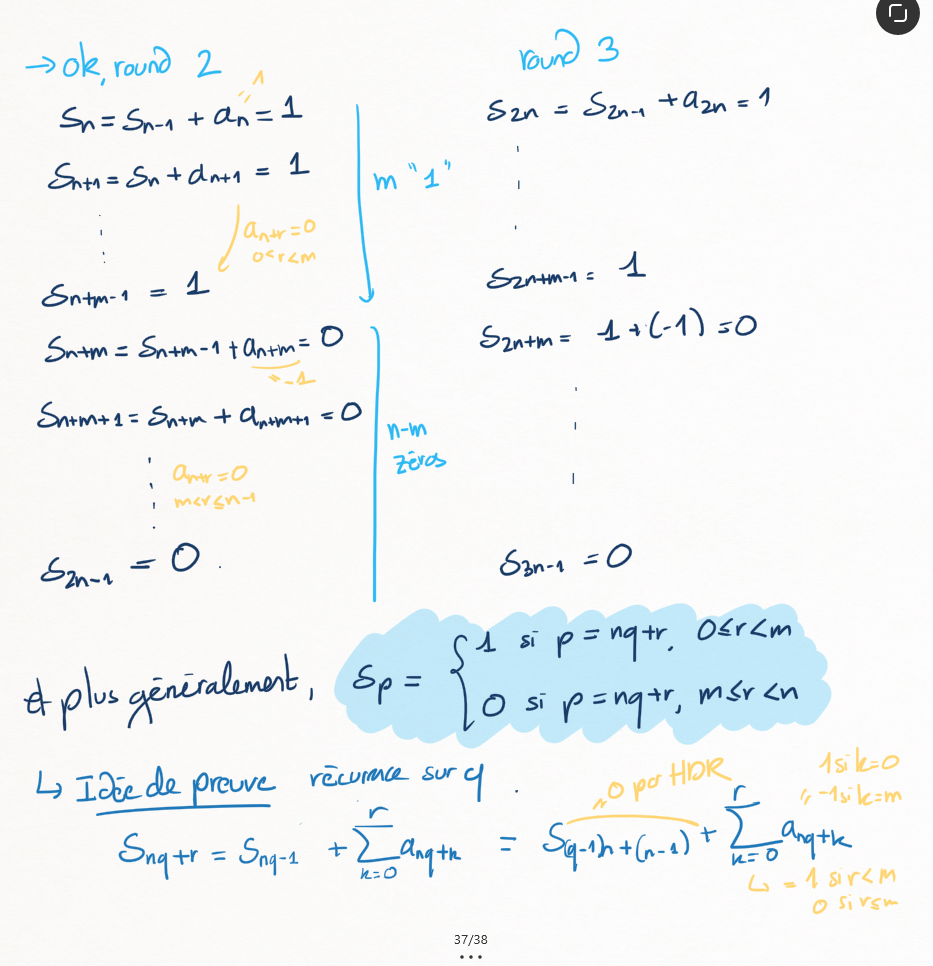 → ok, round 2
S_n = S_{n-1} + a_n = 1
" 1
S_{n+1} = S_n + a_{n+1} = 1
m "1"
a_{n+r} = 0
0<r<m
S_{n+m-1} = 1
S_{n+m} = S_{n+m-1} + a_{n+m} = 0
"-1
S_{n+m+1} = S_{n+m} + a_{n+m+1} = 0
n-m
zéros
a_{n+r} = 0
m<r≤n-1
S_{2n-1} = 0
round 3
S_{2n} = S_{2n-1} + a_{2n} = 1
S_{2n+m-1} = 1
S_{2n+m} = 1+(-1) = 0
S_{3n-1} = 0
et plus généralement, S_p = { 1 si p = nq+r, 0≤r<m
0 si p = nq+r, m≤r<n
↳ Idée de preuve récurrence sur q
S_{nq+r} = S_{nq-1} + \sum_{k=0}^{r} a_{nq+k} = S_{(q-1)n+(n-1)} + \sum_{k=0}^{r} a_{nq+k}
" 0 par HDR
1 si k=0
" -1 si k=m
↳ = 1 si r<m
0 si r≤m
37/38